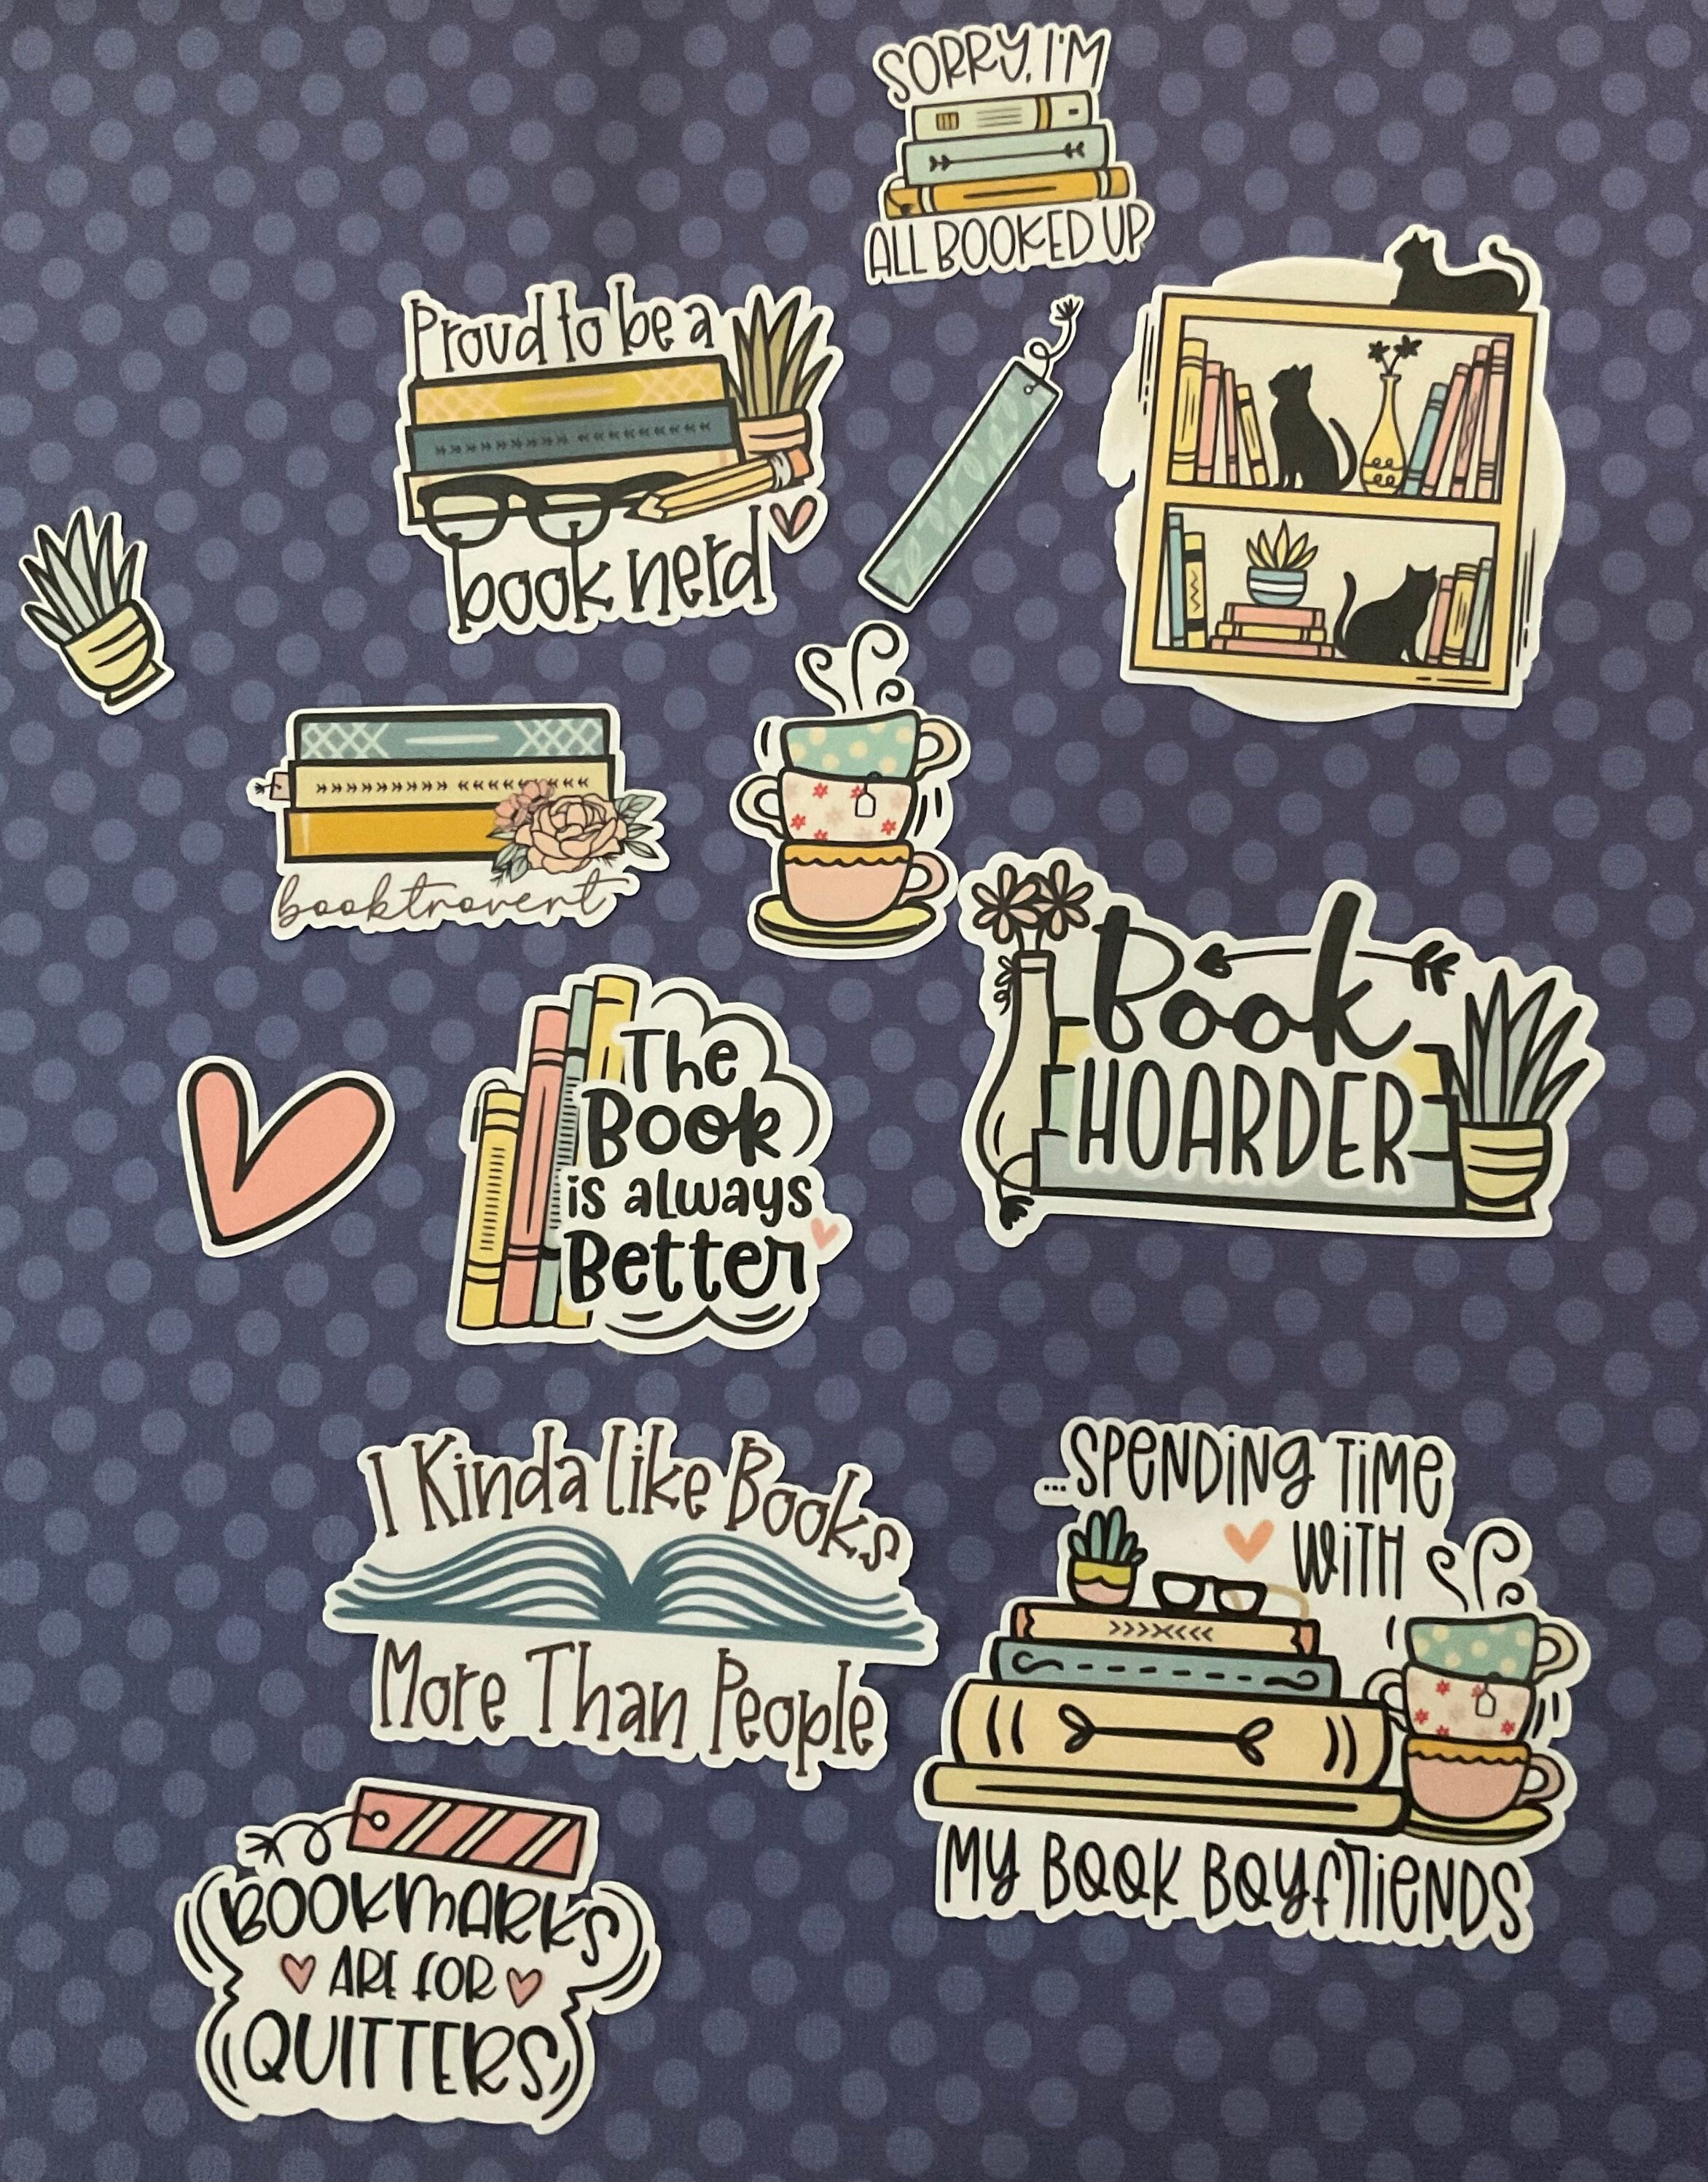 SORRY, I'M
ALL BOOKED UP
Proud to be a
book nerd
booktrovert
Book
HOARDER
The
Book
is always
Better
I Kinda like Books
More Than People
...SPENDING TIME
WITH
MY BOOK BOYFRIENDS
BOOKMARKS
ARE FOR
QUITTERS